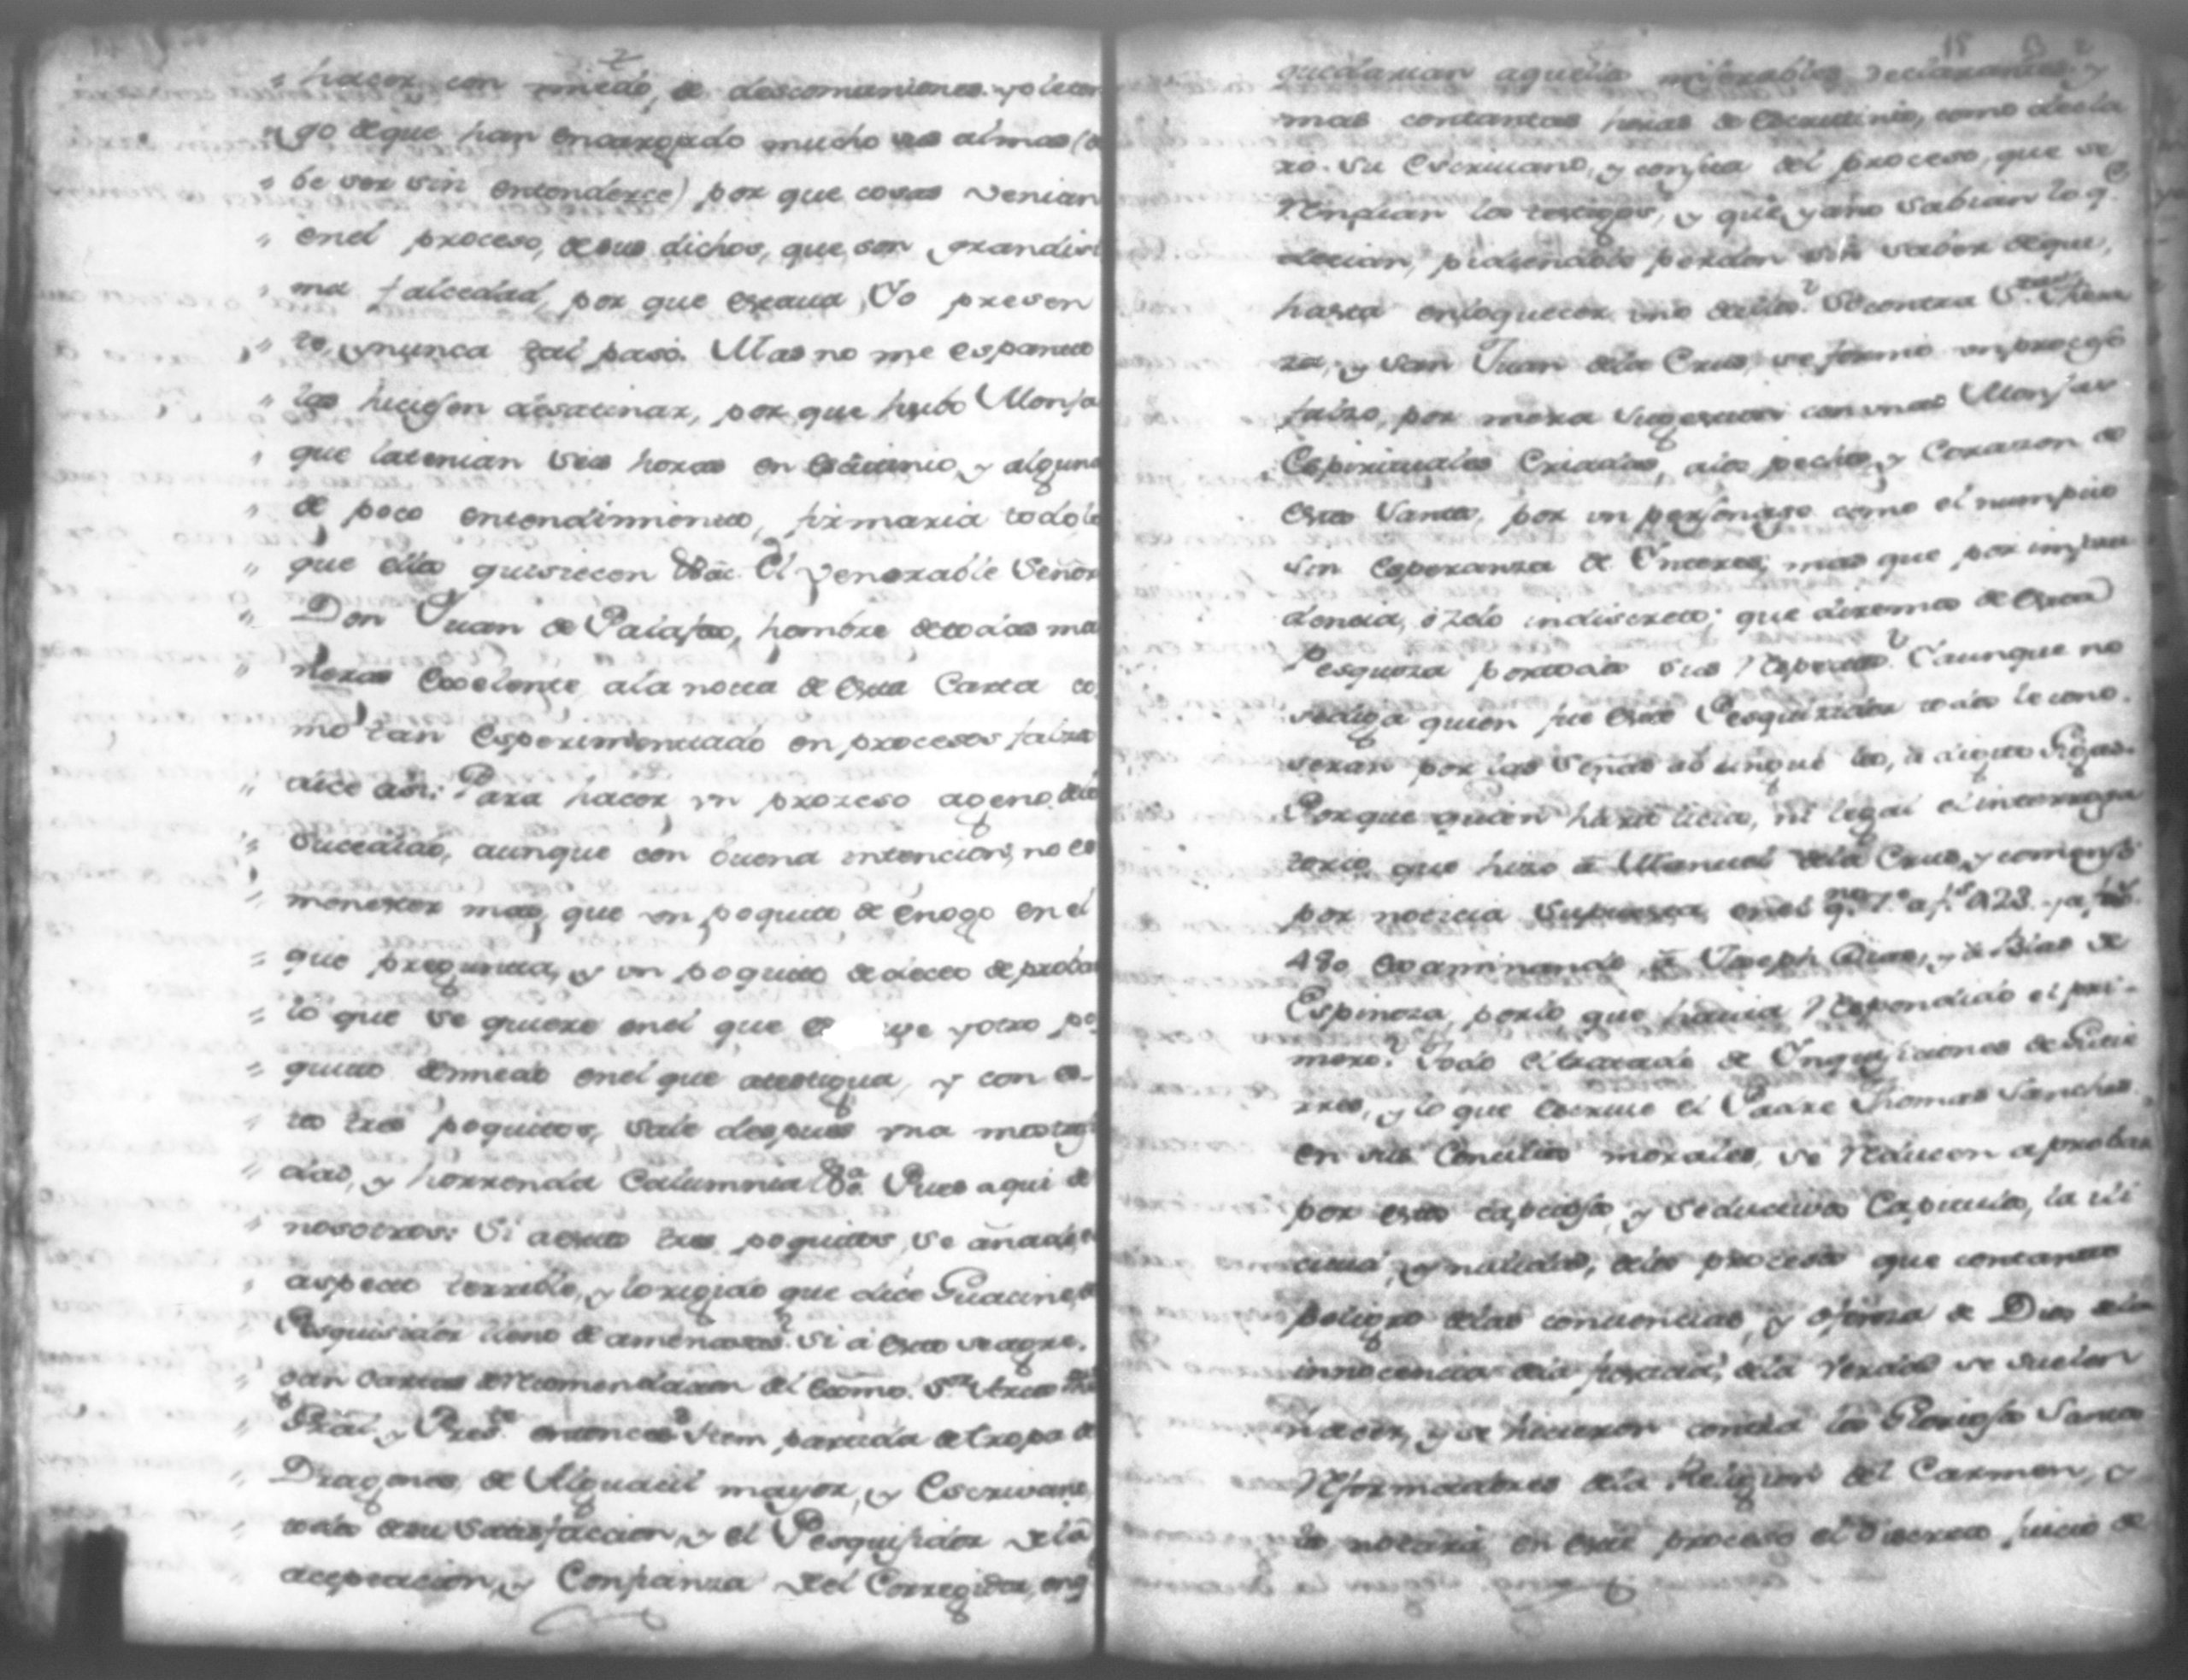 hacer con miedo, de descomuniones. yo le ten
go deque han encargado mucho sus almas (de
be ser sin entenderse) por que cosas venian
enel proceso, de sus dichos, que son grandisi
ma falcedad, por que estaua Yo presen
te, y nunca tal pasó. Mas no me espanto
las hiciesen desatinar, por que hubo Monja
que latenian seis horas en escrutinio, y alguna
de poco entendimiento, firmaria todo lo
que ellos quisiecen &ca. El Venerable Señor
Don Juan de Palafox, hombre de todas ma
neras Excelente, ala nota de esta Carta co
mo tan Esperimentado en procesos falsos
dice asi: Para hacer un proceso ageno delo
Sucedido, aunque con buena intencion, no es
menester mas, que un poquito de enogo en el
que pregunta, y un poquito de deceo de probar
lo que se quiere enel que es ve y otro po
quito de miedo enel que atestigua, y con es-
tos tres poquitos, sale despues una monstruo
dad, y horrenda Calumnia &a. Pues aqui de
nosotros: Si a estos tres poquitos, se añade el
aspecto terrible, y lo rigido que dice Guacino, de
Pesquisidor lleno de amenazas? Si á esto se agre.
gan Cartas de Recomendacion del Exmo. Sor. Virrey
Gral, y Preste. entonces? Item partida de tropa de
Dragones, de Alguacil mayor, y Escrivano,
todo de su satisfaccion, y el Pesquisidor dela
aceptacion, y Confianza del Corregidor, en q
quedarian aquellos miserables declarantes, y
mas contantas horas de Escrutinio, como decla
ro. su Escriuano, y consta del proceso, que se
Rendian los testigos, y que, ya no sabian lo q.e
decian, pidiendole perdon sin saber deque,
hasta enloquecer uno dellos? Si contra Sta. There
za, y San Juan dela Cruz, se formo un proceso
falzo, por mera sugestion con unas Monjas
Espirituales Criadas, alos pechos, y Corazon de
estos Santos, por un personage como el nuncio
sin Esperanza de Interes, mas que por impru
dencia, ó zelo indiscreto; que diremos de esta
Pesquiza por todos sus Respectos? Y aunque no
se diga quien fue este Pesquizidor todos le cono.
seran por las Señas ab ungue leo, á digito Gigas.
Porque quien hará licito, ni legal el interroga
torio, que hizo á Manuel dela Cruz, y comenzó
por noticia Supuesta, enel qno. 1.o a fs 423. y a fs
480 Examinando, á Joseph Dias, y á Blas de
Espinoza, por lo que havia Respondido el pri-
mero? Todo el tratado de Inquisiciones de Gutie
rres, y lo que escriue el Padre Thomas Sanches
en sus Concilios morales, se Reducen a probar
por estos capciosos, y seductivos Capitulos, la ili
citud, y nulidad, delos procesos que contanto
peligro delas conciencias, y ofensa de Dios dela
innocencia dela Justicia, dela Verdad se suelen
hacer, y se hicieron contra los Gloriosos Santos
Reformadores dela Religion del Carmen, y
lo notará en este proceso el Discreto Juicio de